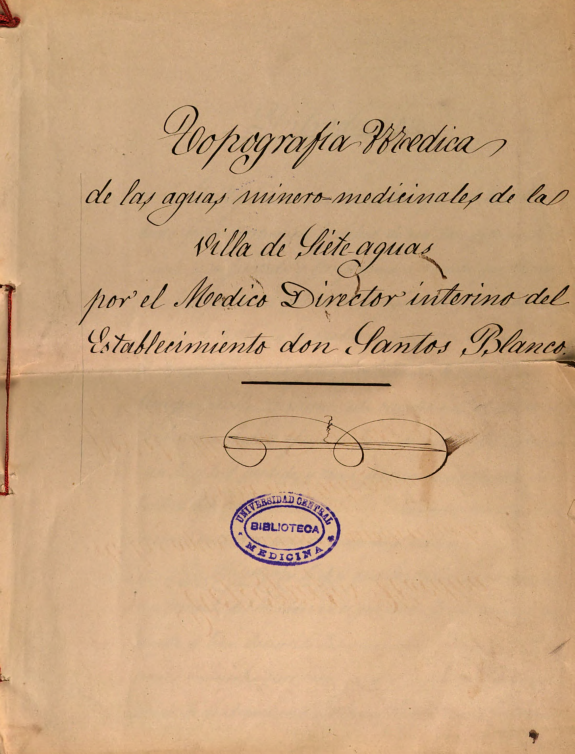 Topografia Medica
de las aguas minero-medicinales de la
Villa de Siete aguas
por el Medico Director interino del
Establecimiento don Santos Blanco.
UNIVERSIDAD CENTRAL
BIBLIOTECA
MEDICINA